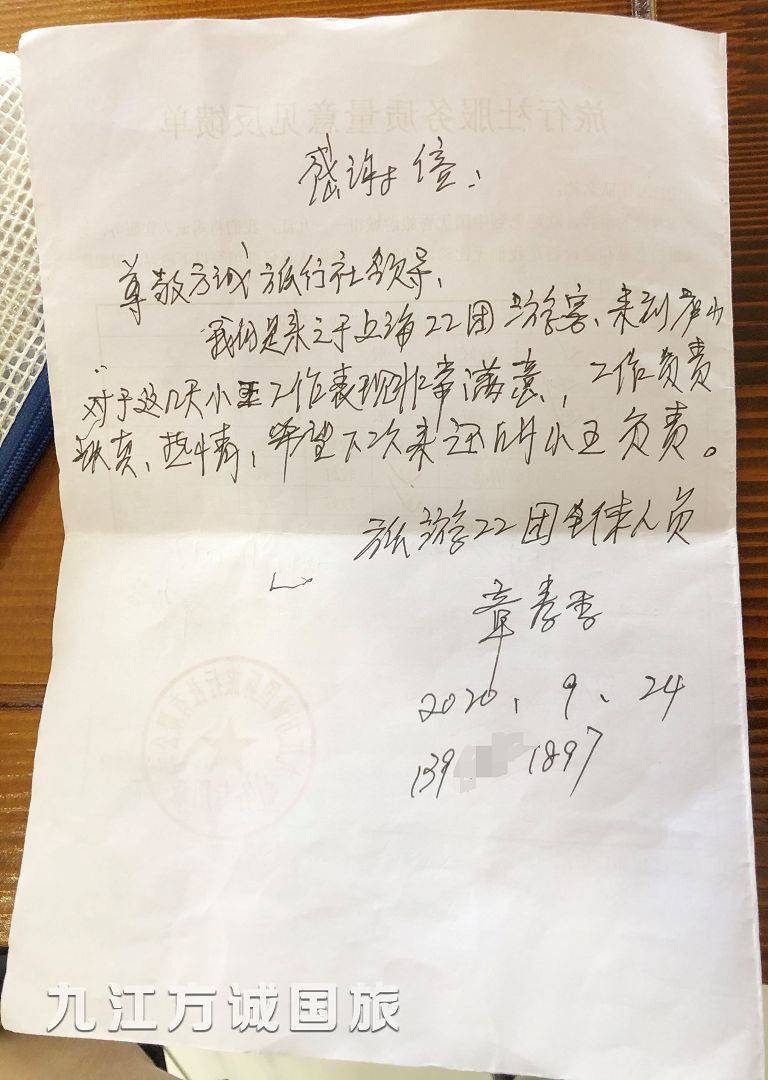 感谢信:
尊敬方诚旅行社领导、
我们是来之于上海22团游客、来到庐山
对于这几天小王工作表现非常满意，工作负责
认真、热情，希望下次来还由小王负责。
旅游22团全体人员
章
2020、9、24
139 1897
九江方诚国旅
旅行社服务质量意见反馈单